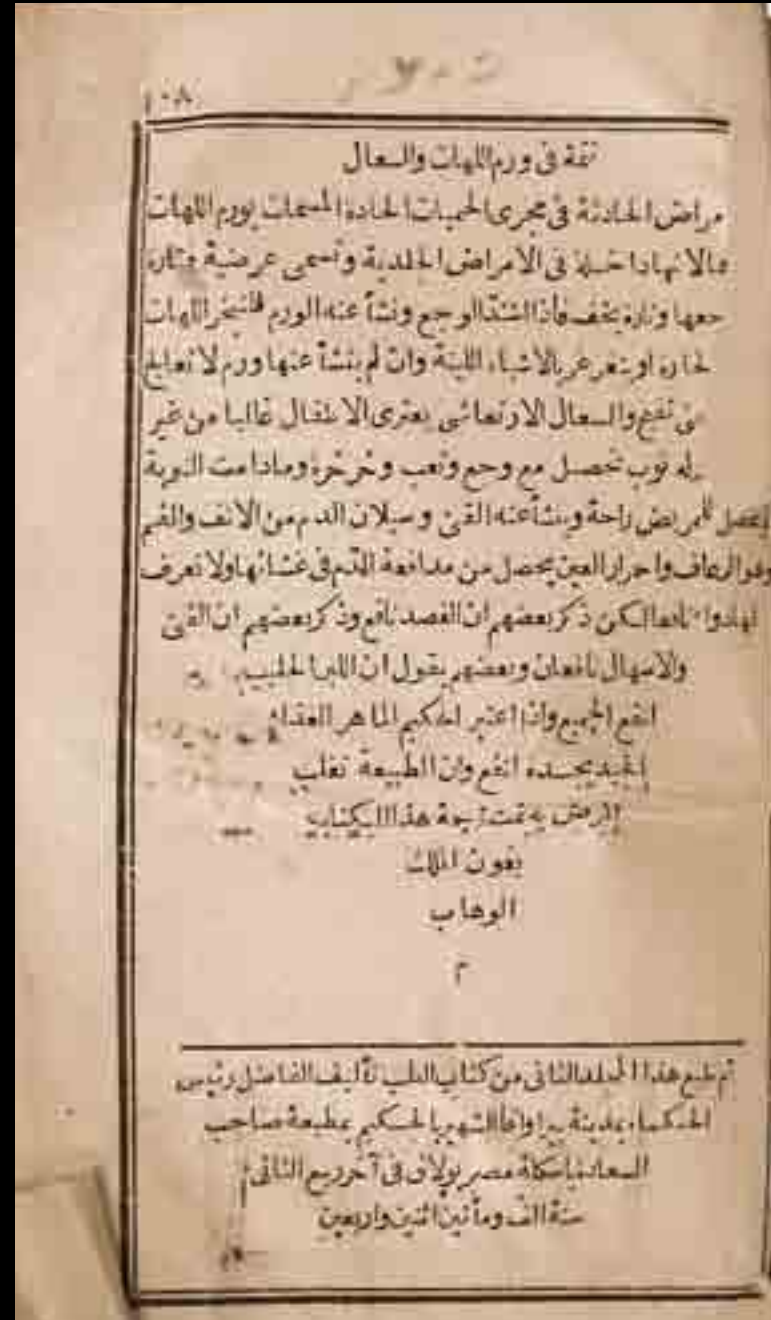 ١٠٨
تتمة فى ورم اللهات والسعال
مراض الحادثة فى مجرى الحميات الحادة المسمات بورم اللهات
لانها داخلة فى الامراض الجلدية وتسمى عرضية وتارة
جعها وتارة يخف فاذا اشتد الوجع ونشأ عنه الورم اللهات
لحارة او يتغرغر بالاشياء اللينة وان لم ينشأ عنها ورم لا تعالج
تنفع والسعال الارتعاشى يعترى الاطفال غالبا من غير
له نوب تحصل مع وجع وتعب وخرخرة ومادامت النوبة
للمريض راحة وينشأ عنه القئ وسيلان الدم من الانف والفم
وهو الرعاف واحرار العين يحصل من مدافعة الدم فى غشائها ولا نعرف
لها دواء نافعا لكن ذكر بعضهم ان الفصد نافع وذكر بعضهم ان القئ
والاسهال نافعان وبعضهم يقول ان اللبن الحليب
انفع الجميع واذا اعتبر الحكيم الماهر الغذاء
الجيد يجده انفع وان الطبيعة تغلب
المرض تمت ترجمة هذا الكتاب
بعون الملك
الوهاب
م
تم طبع هذا المجلد الثانى من كتاب الطب تأليف الفاضل رئيس
الحكماء بمدينة الشهير بالحكيم بمطبعة صاحب
السعادة مصر بولاق فى آخر ربيع الثانى
سنة الف ومأتين اثنين واربعين